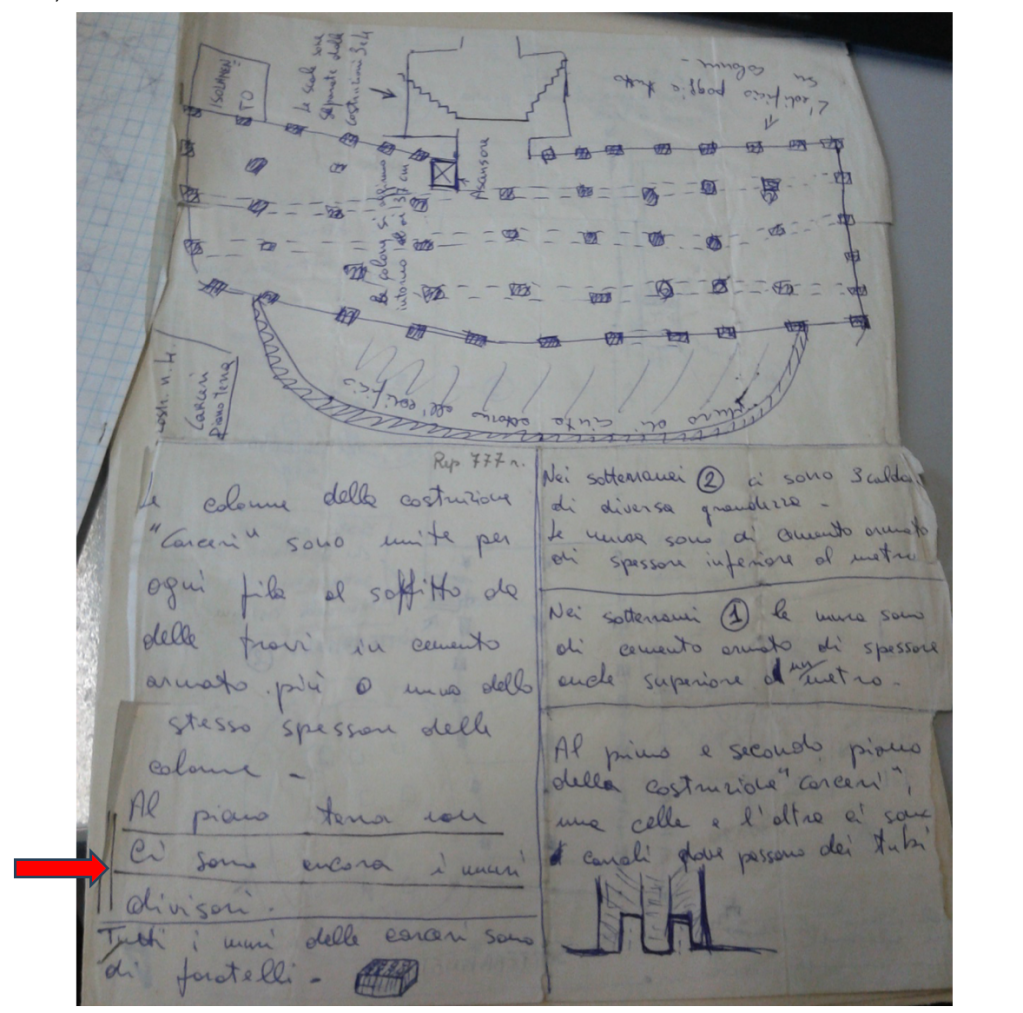 ISOLAMEN
TO
Le scale sono
separate dalle
costruzioni 3 e 4
L'edificio poggia tutto
su colonne -
Ascensore
Le colonne si
intorno ai 37 cm
muro di cinta attorno all'edificio
costr. n. 4
Carceri
Piano terra
Rep 777 n.
Le colonne della costruzione
"Carceri" sono unite per
ogni fila al soffitto da
delle travi in cemento
armato più o meno dello
stesso spessore delle
colonne -
Al piano terra non
Ci sono ancora i muri
divisori.
Tutti i muri delle carceri sono
di foratelli -
Nei sotterranei 2 ci sono 3 caldaie
di diversa grandezza -
Le mura sono di cemento armato
di spessore inferiore al metro
Nei sotterranei 1 le mura sono
di cemento armato di spessore
anche superiore al metro -
Al primo e secondo piano
della costruzione "carceri",
una cella e l'altra ci sono
canali dove passano dei tubi